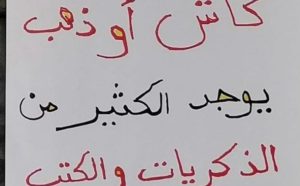 كاش أو ذهب
يوجد الكثير من
الذكريات والكتب